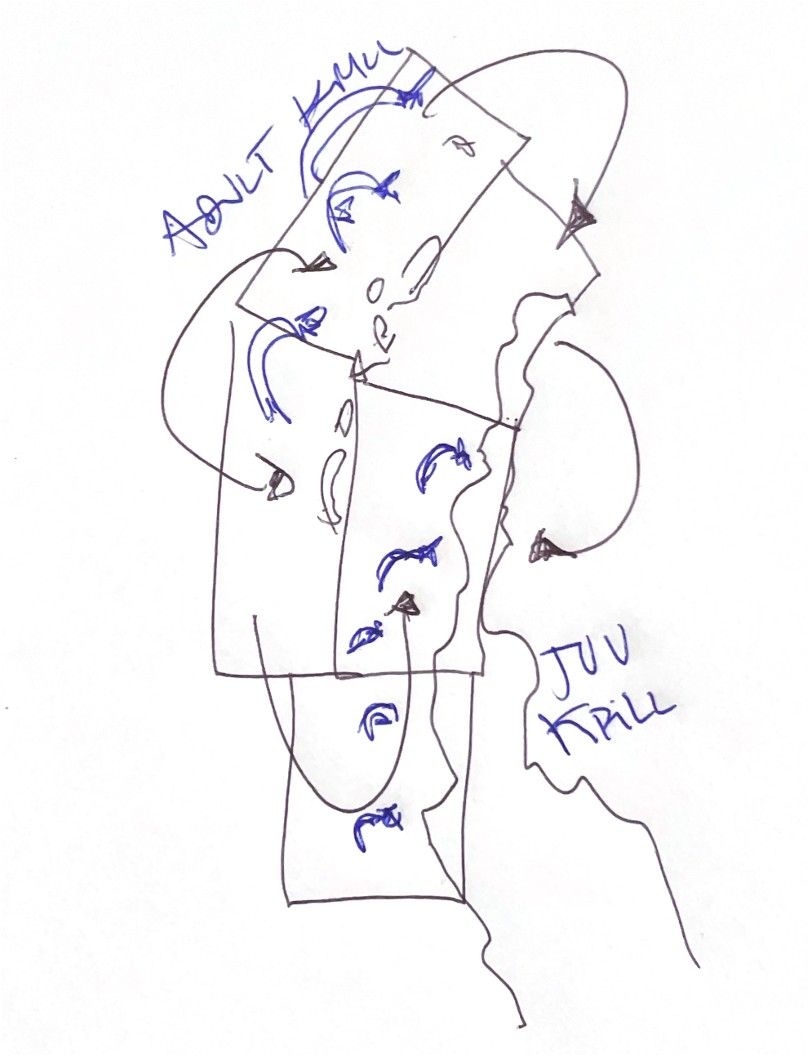 ADULT KRILL
JUV
KRILL